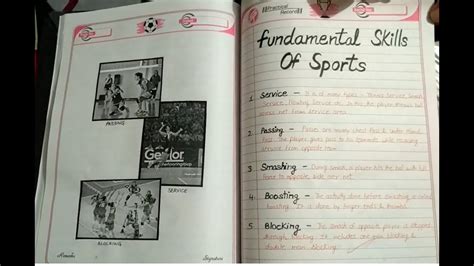 PASSING
Gerflor
theflooringgroup
SERVICE
BLOCKING
Remarks
Signature
Practical
Record
Fundamental Skills
Of Sports
1. Service - It is of many types - Tennis service, Smash
service, floating service etc. In this the player throws ball
across net from service area.
2. Passing -
pass. The player gives pass to his teammate while receiving
service from opposite team.
3. Smashing - During smash, a player hits the ball with full
force to opposite side over net.
4. Boosting - The activity done before smashing is called
boosting. It is done by finger ends & thumbs.
5. Blocking - The smash of opposite player is stopped
through blocking. It includes one man blocking &
double man blocking.